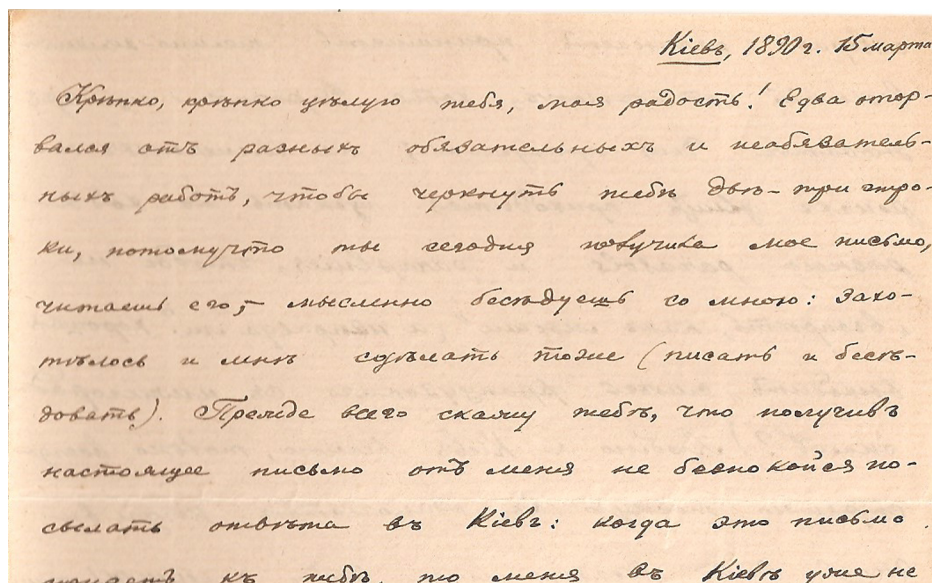 Кіевъ, 1890 г. 15 марта
Крѣпко, крѣпко цѣлую тебя, моя радость! Едва отор-
вался отъ разныхъ обязательныхъ и необязатель-
ныхъ работъ, чтобы черкнуть тебѣ двѣ-три стро-
ки, потомучто ты сегодня получила мое письмо,
читаешь его, мысленно бесѣдуешь со мною: Захо-
тѣлось и мнѣ сдѣлать тоже (писать и бесѣ-
довать). Прежде всего скажу тебѣ, что получивъ
настоящее письмо отъ меня не безпокойся по-
сылать отвѣта въ Кіевъ: когда это письмо
къ тебѣ, то меня въ Кіевѣ уже не